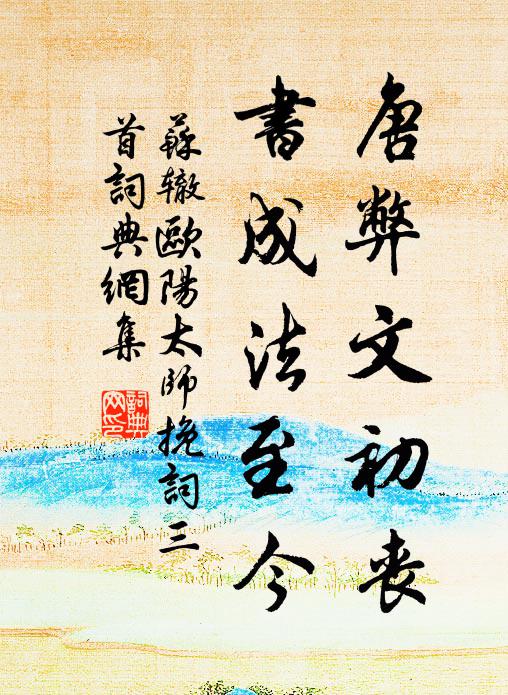 唐弊文初喪
書成法至今
蘇辙歐陽太師挽詞三
首詞典網集
詞典
网印